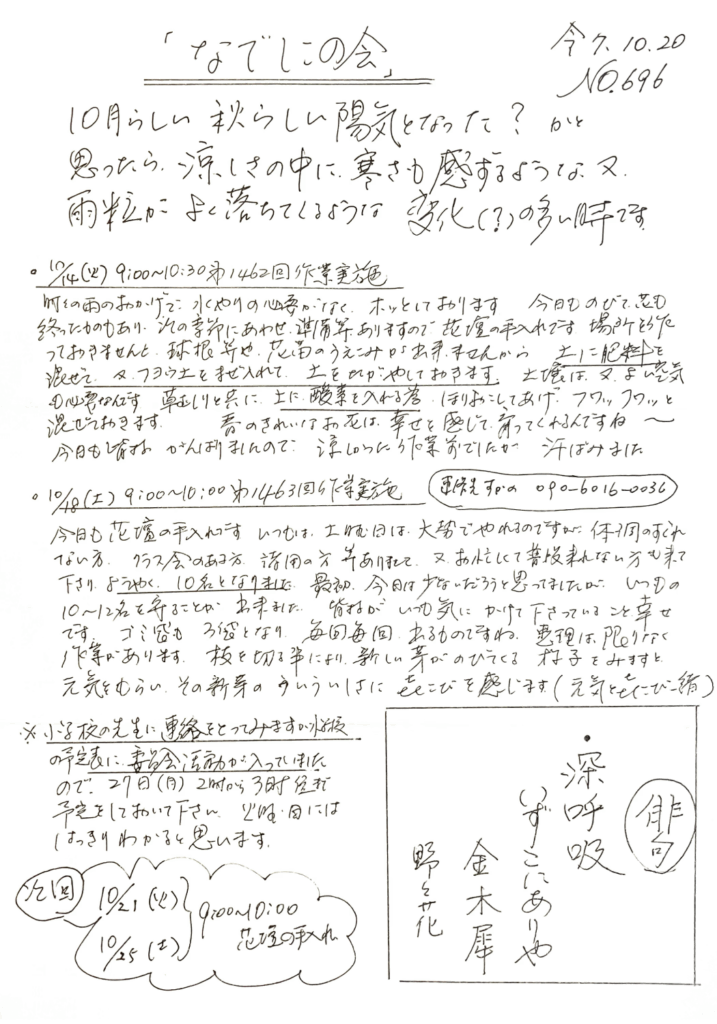 「なでしこの会」
令7.10.20
NO.696
10月らしい 秋らしい陽気となった？ かと
思ったら、涼しさの中に、寒さも感ずるような、又、
雨粒が よく落ちてくるような 変化(？)の多い時です
・10/14(火) 9:00〜10:30 第1462回作業実施
時々の雨のおかげで、水くやりの必要がなく、ホッとしております 今日ものびて、花も
終ったものもあり、次の季節にあわせ、準備等ありますので 花壇の手入れです 場所を作
っておきませんと、球根等や、花苗のうえこみが出来ませんから 土に肥料を
混ぜて、又、フヨウ土をまぜ入れて、土をかがやしておきます。土壌は、又、よい空気
も必要なんです 草むしりと共に、土に酸素を入れる為、ほりおこしてあげ、フワッフワッと
混ぜておきます。 春のきれいなお花は、幸せと感じて、育ってくれるんですね〜
今日も皆様 がんばりましたので、涼しかった作業でしたが 汗ばみました
・10/18(土) 9:00〜10:00 第1463回作業実施
連絡先 すがの 090-6016-0036
今日も花壇の手入れです いつもは、土曜日は、大勢でやれるのですが、体調のすぐれ
ない方、クラス会のある方、諸用の方 等ありまして、又、お忙しくて普段来れない方も来て
下さり、ようやく、10名となりました 最初、今日は少ないだろうと思ってましたが、いつもの
10〜12名を守ることが 出来ました。皆様が いつも気に かけて下さっていること幸せ
です。ゴミ袋も 3袋となり、毎回毎回、出るものですね。整理は、限りなく
作業があります。枝を切る事により、新しい芽がのびてくる 様子をみますと
元気をもらい、その新芽の ういういしさに 喜こびを感じます(元気と喜こび一緒)
※ 小学校の先生に連絡をとってみますが小学校
の予定表に、委員会活動が入っていました
ので、27日(月) 2時から3時位まで
予定をしておいて下さい。火曜日には
はっきりわかると思います。
次回
10/21 (火)
10/25 (土)
9:00〜10:00
花壇の手入れ
俳句
・深呼吸
いずこにありや
金木犀
野々花